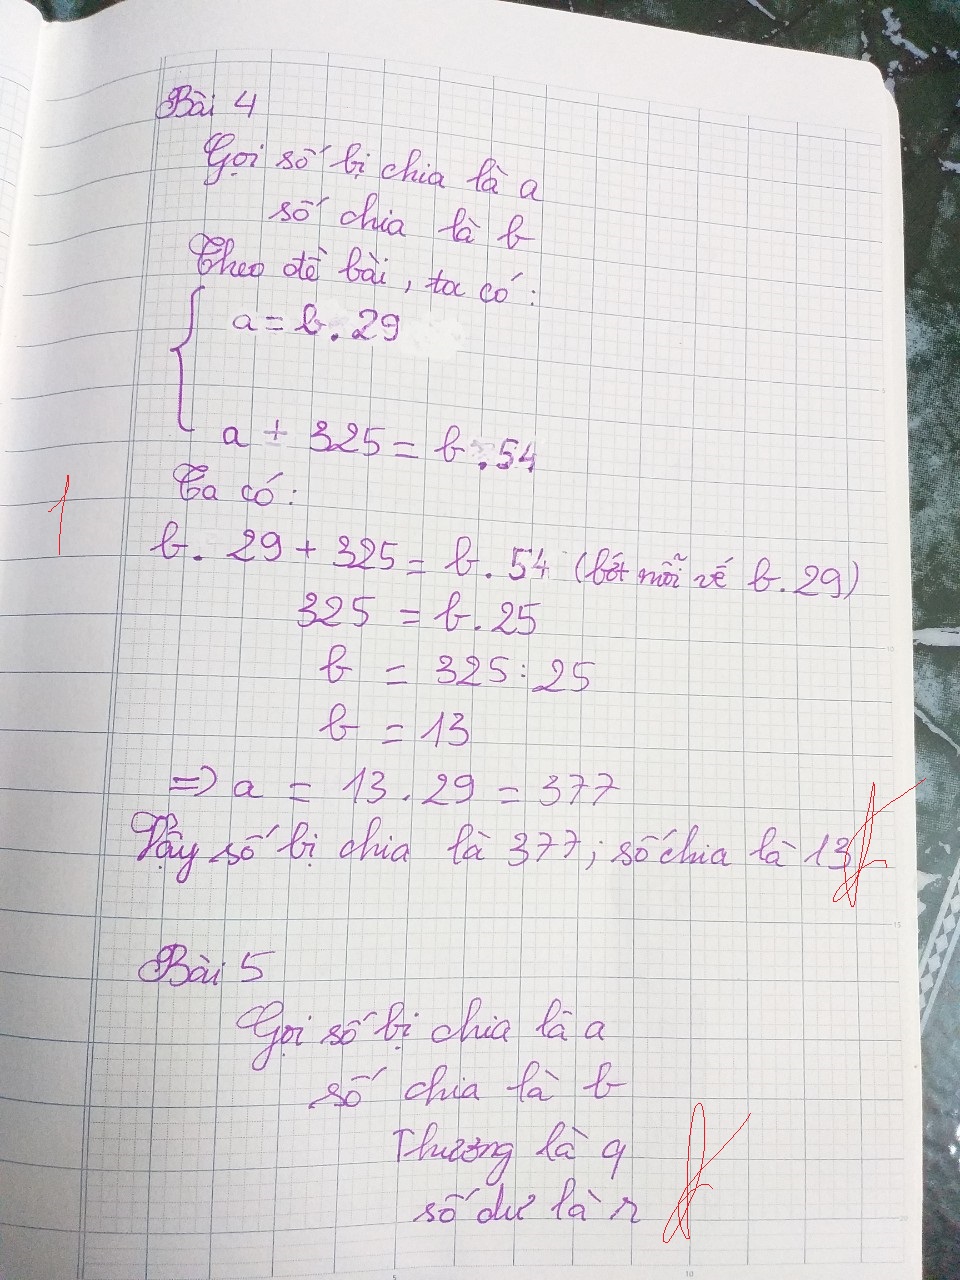 Bài 4
Gọi số bị chia là a
số chia là b
Theo đề bài, ta có:
a = b . 29
a + 325 = b . 54
Ta có:
b . 29 + 325 = b . 54 (bớt mỗi vế b . 29)
325 = b . 25
b = 325 : 25
b = 13
=> a = 13 . 29 = 377
Vậy số bị chia là 377; số chia là 13
1
Bài 5
Gọi số bị chia là a
số chia là b
Thương là q
số dư là r